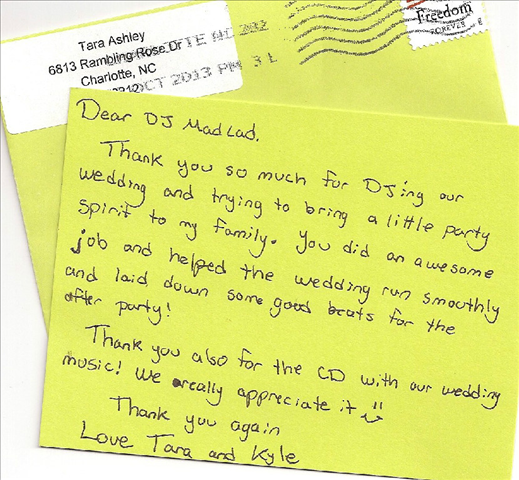 Tara Ashley
6813 Rambling Rose Dr
Charlotte, NC
OCT 2013 PM 3 L
Freedom
FOREVER
Dear DJ MadLad,
Thank you so much for DJ'ing our
wedding and trying to bring a little party
spirit to my family. You did an awesome
job and helped the wedding run smoothly
and laid down some good beats for the
after party!
Thank you also for the CD with our wedding
music! We really appreciate it
Thank you again
Love Tara and Kyle